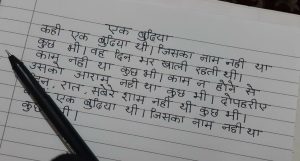 एक बुढ़िया
कही एक बुढ़िया थी। जिसका नाम नही था
कुछ भी। वह दिन भर खाली रहती थी।
काम नही था कुछ भी। काम न होने से
उसको आराम नही था कुछ भी। दोपहरीए
दिन, रात, सबेरे शाम नही थी कुछ भी।
एक बुढ़िया थी। जिसका नाम नही था
कुछ भी।